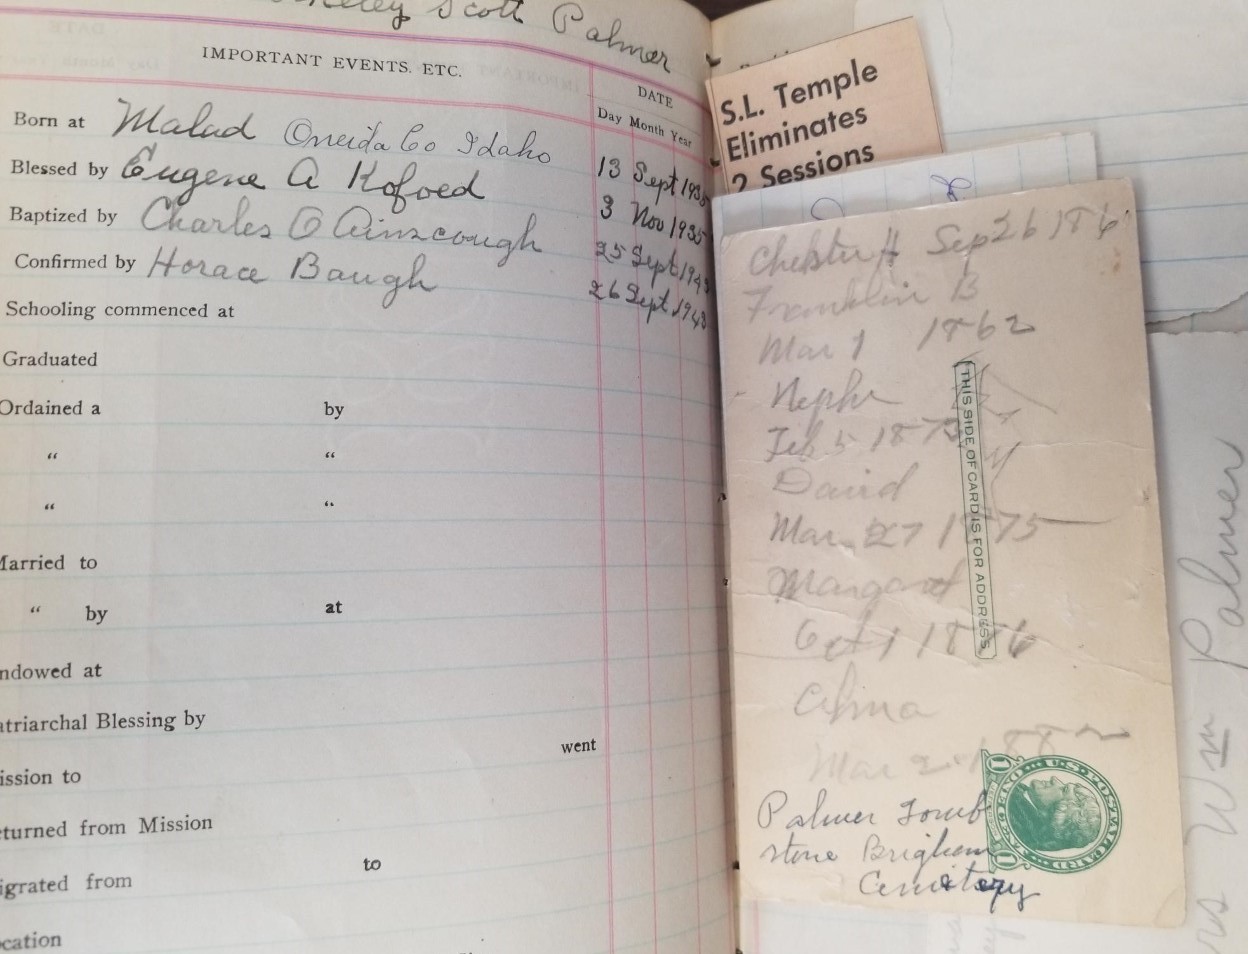 Scott Palmer
IMPORTANT EVENTS. ETC.
DATE
Day Month Year
Born at Malad Oneida Co Idaho 13 Sept 1935
Blessed by Eugene A Kofoed 3 Nov 1935
Baptized by Charles O Ainscough 25 Sept 1943
Confirmed by Horace Baugh 26 Sept 1943
Schooling commenced at
Graduated
Ordained a by
“ “
“ “
Married to
“ by at
ndowed at
atriarchal Blessing by
went
ission to
eturned from Mission
to
igrated from
ocation
S.L. Temple
Eliminates
2 Sessions
Chester H Sep 26 186
Franklin B
Mar 1 1862
Nephi
Feb 5 187
David
Mar 27 1875
Margaret
Oct 1 1876
Alma
Mar 2 1882
THIS SIDE OF CARD IS FOR ADDRESS
U.S. POSTAL CARD
Palmer Tomb
stone Brigham
Cemetery
Wm Palmer